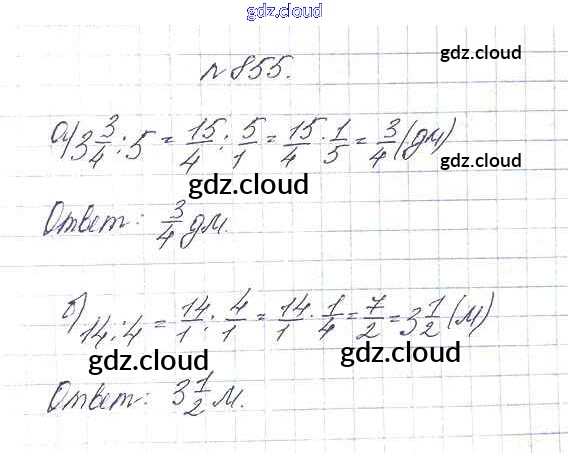 gdz.cloud
gdz.cloud
№855.
а) 3 3/4 : 5 = 15/4 : 5/1 = 15/4 · 1/5 = 3/4 (дм)
gdz.cloud
gdz.cloud
Ответ: 3/4 дм.
б) 14 : 4 = 14/1 : 4/1 = 14/1 · 1/4 = 7/2 = 3 1/2 (м)
gdz.cloud
gdz.cloud
Ответ: 3 1/2 м.